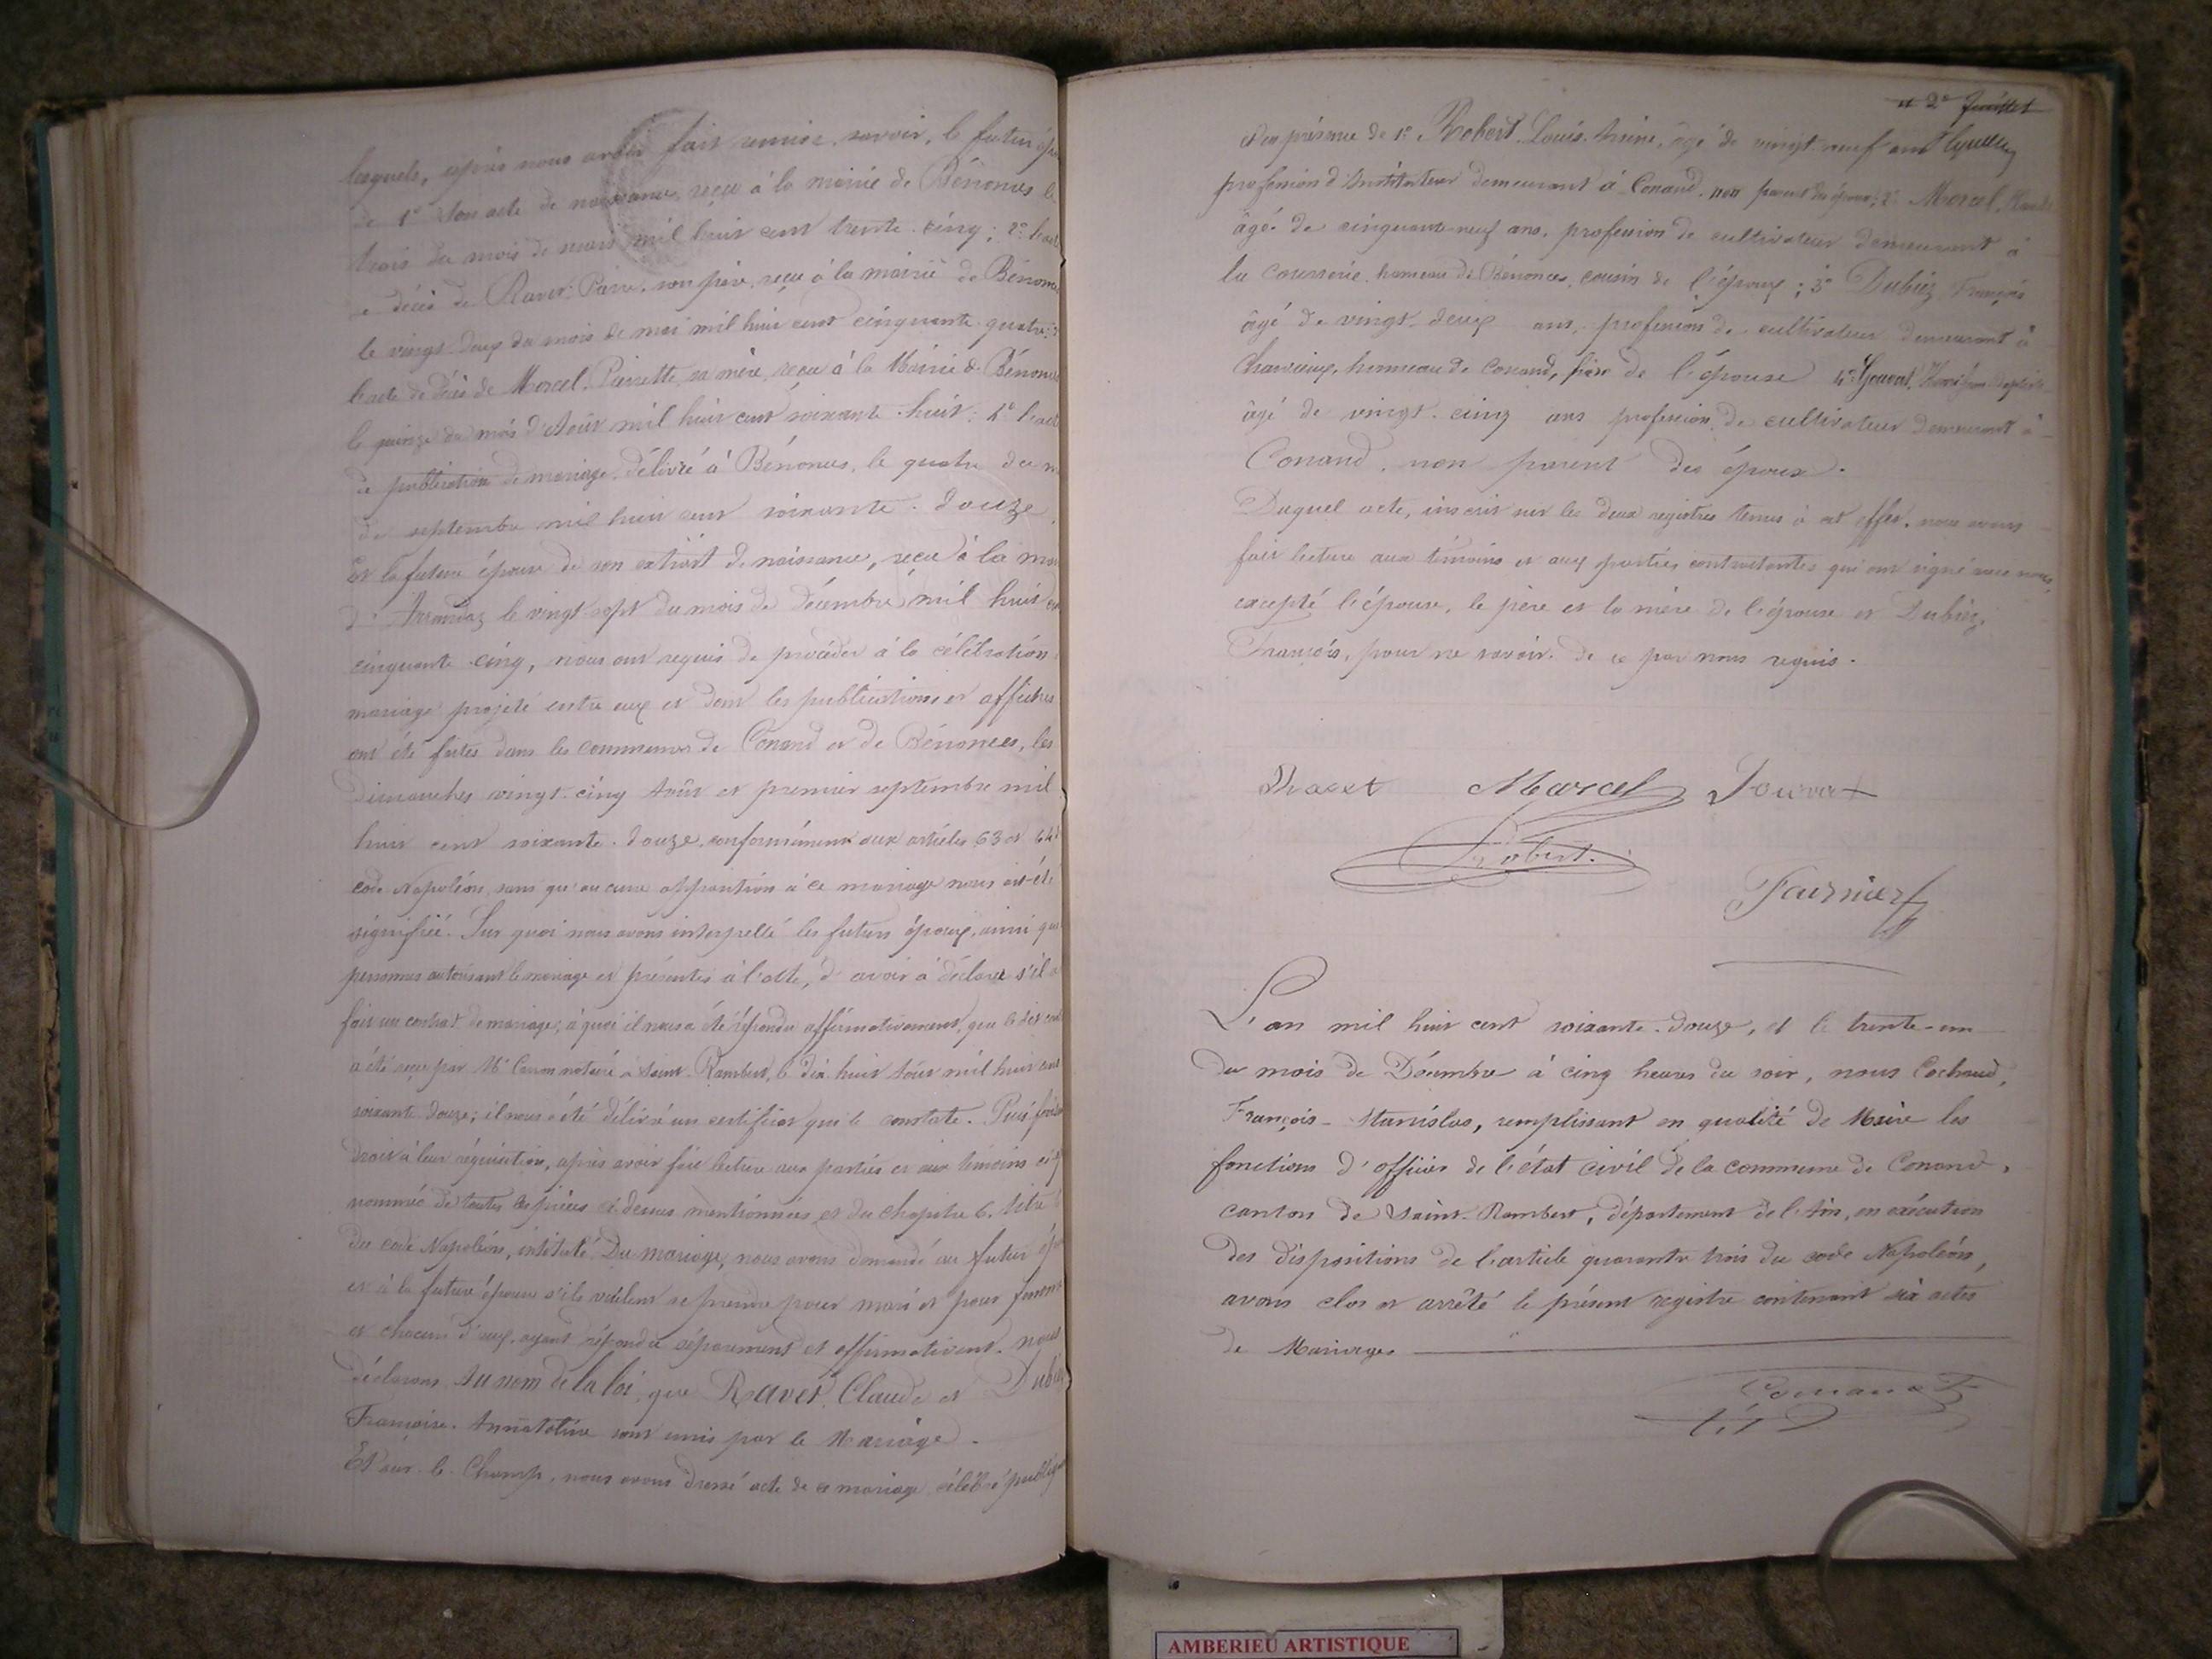 lesquels, après nous avoir fait remise, savoir, le futur
de 1° Son acte de naissance, reçu à la mairie de Bénonces le
trois du mois de mars mil huit cent trente-cinq; 2°
décès de Ravet Pierre, son père, reçu à la mairie de Bénonces
le vingt-deux du mois de mai mil huit cent cinquante-quatre;
l'acte de décès de Marcel, Pierrette, sa mère, reçu à la Mairie de Bénonces
le quinze du mois d'Août mil huit cent soixante-huit; 4°
de publication de mariage, délivré à Bénonces, le quatre du
de septembre mil huit cent soixante-douze,
Et la future épouse de son extrait de naissance, reçu à la
d'Arrandaz le vingt-sept du mois de décembre mil huit
cinquante-cinq, nous ont requis de procéder à la célébration
mariage projeté entre eux et dont les publications et affiches
ont été faites dans les communes de Conand et de Bénonces, les
Dimanches vingt-cinq Août et premier septembre mil
huit cent soixante-douze, conformément aux articles 63 et 64
code Napoléon, sans qu'aucune opposition à ce mariage nous ait été
signifiée. Sur quoi nous avons interpellé les futurs époux, ainsi que
personnes autorisant le mariage et présentes à l'acte, d'avoir à déclarer s'il a
fait un contrat de mariage; à quoi il nous a été répondu affirmativement, que le dit
a été reçu par Me notaire à Saint-Rambert, le dix-huit Août mil huit cent
soixante-douze; il nous a été délivré un certificat qui le constate. Puis
droit à leur réquisition, après avoir fait lecture aux parties et aux témoins
nommés de toutes les pièces ci-dessus mentionnées et du chapitre 6, titre
du code Napoléon, intitulé Du mariage, nous avons demandé au futur
et à la future épouse s'ils veulent se prendre pour mari et pour femme
et chacun d'eux ayant répondu séparément et affirmativement. nous
déclarons Au nom de la loi, que Ravet, Claude et
Françoise-Annatolise sont unis par le Mariage.
Et sur-le-Champ, nous avons dressé acte de ce mariage, célébré
2e feuillet
et en présence de 1° Robert Louis, âgé de vingt-neuf ans
profession d'Instituteur demeurant à Conand, non parent des époux; 2° Marcel,
âgé de cinquante-neuf ans, profession de cultivateur demeurant à
la hameau de Bénonces, cousin de l'époux; 3° Dubiez François
âgé de vingt-deux ans, profession de cultivateur demeurant à
hameau de Conand, frère de l'épouse 4°
âgé de vingt-cinq ans profession de cultivateur demeurant à
Conand, non parent des époux.
Duquel acte, inscrit sur les deux registres tenus à cet effet, nous avons
fait lecture aux témoins et aux parties contractantes qui ont signé avec nous,
excepté l'épouse, le père et la mère de l'épouse et Dubiez,
François, pour ne savoir, de ce par nous requis.
Ravet Marcel Jouvat
Robert.
Fournier
L'an mil huit cent soixante-douze, et le trente-un
du mois de Décembre à cinq heures du soir, nous Cochaud,
François-Stanislas, remplissant en qualité de Maire les
fonctions d'officier de l'état civil de la commune de Conand,
canton de Saint-Rambert, département de l'Ain, en exécution
des dispositions de l'article quarante-trois du code Napoléon,
avons clos et arrêté le présent registre contenant six actes
de Mariages
AMBERIEU ARTISTIQUE